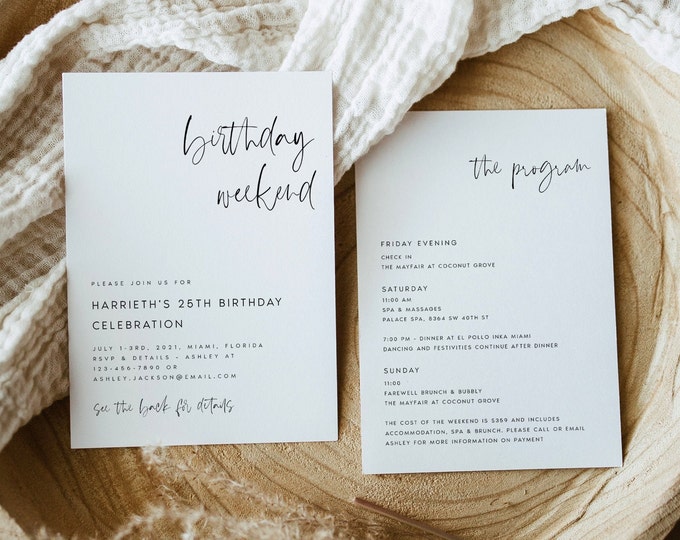 birthday
weekend
PLEASE JOIN US FOR
HARRIETH'S 25TH BIRTHDAY
CELEBRATION
JULY 1-3RD, 2021, MIAMI, FLORIDA
RSVP & DETAILS - ASHLEY AT
123-456-7890 OR
ASHLEY.JACKSON@EMAIL.COM
see the back for details
the program
FRIDAY EVENING
CHECK IN
THE MAYFAIR AT COCONUT GROVE
SATURDAY
11:00 AM
SPA & MASSAGES
PALACE SPA, 8364 SW 40TH ST
7:00 PM - DINNER AT EL POLLO INKA MIAMI
DANCING AND FESTIVITIES CONTINUE AFTER DINNER
SUNDAY
11:00
FAREWELL BRUNCH & BUBBLY
THE MAYFAIR AT COCONUT GROVE
THE COST OF THE WEEKEND IS $359 AND INCLUDES
ACCOMMODATION, SPA & BRUNCH. PLEASE CALL OR EMAIL
ASHLEY FOR MORE INFORMATION ON PAYMENT